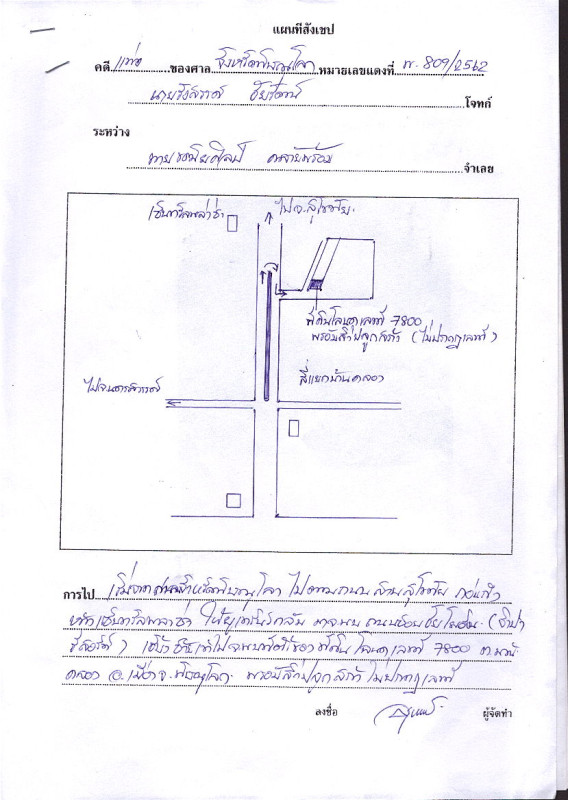 แผนที่สังเขป
คดี แพ่ง ของศาล จังหวัดพิษณุโลก หมายเลขแดงที่ พ. 809/2562
โจทก์
ระหว่าง
จำเลย
เซ็นทรัลพลาซ่า
ไป จ.สุโขทัย
ที่ดินโฉนดเลขที่ 7800
พร้อมสิ่งปลูกสร้าง (ไม่ปรากฏเลขที่)
สี่แยกบ้านคลอง
ไปนครสวรรค์
การไป เริ่มจากศาลจังหวัดพิษณุโลก ไปตามถนนสายสุโขทัย ก่อนถึง
ห้างเซ็นทรัลพลาซ่า ให้ยูเทิร์นกลับ จะพบถนน
รีสอร์ท) ที่ดินโฉนดเลขที่ 7800 ต.บ้าน
คลอง อ.เมือง จ.พิษณุโลก พร้อมสิ่งปลูกสร้างไม่ปรากฏเลขที่
ลงชื่อ ผู้จัดทำ